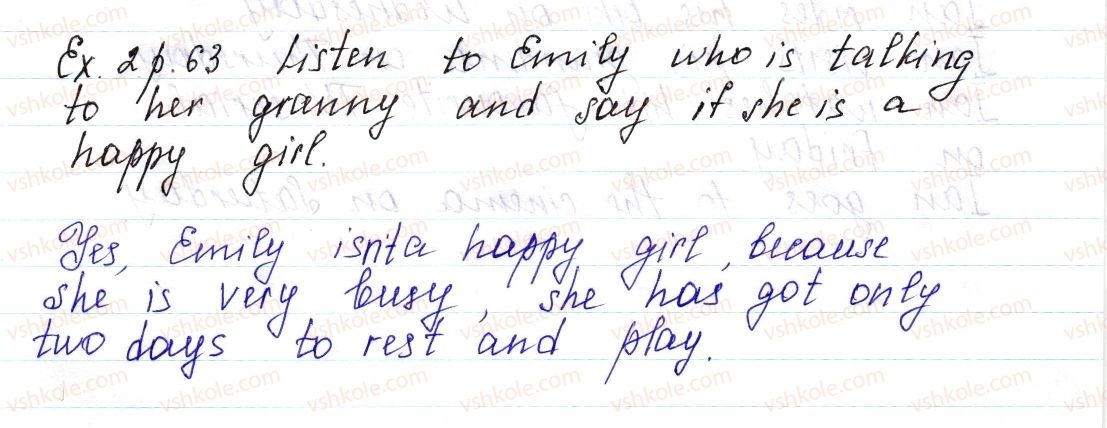 Ex. 2 p. 63 Listen to Emily who is talking
to her granny and say if she is a
happy girl.
Yes, Emily isn't a happy girl, because
she is very busy, she has got only
two days to rest and play.